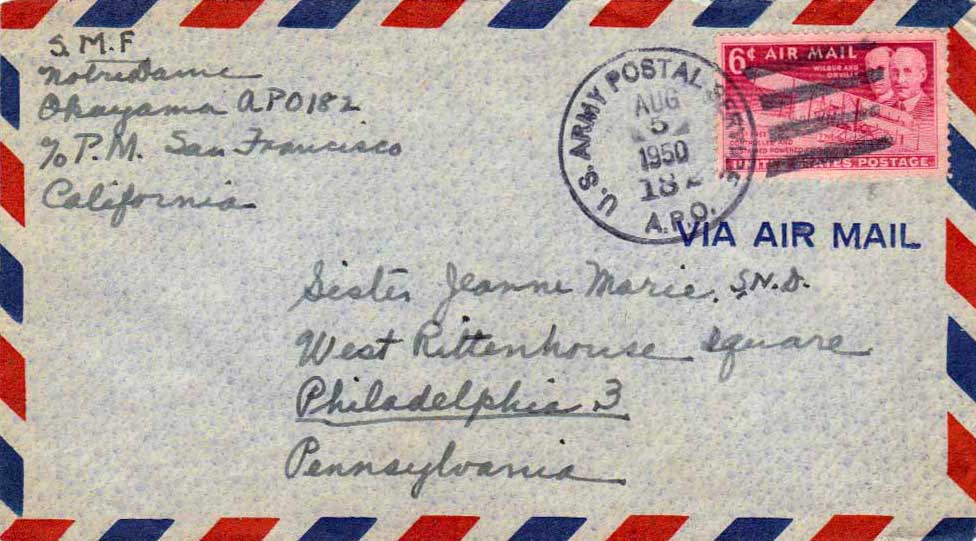 S.M.F
Notre Dame
Okayama APO 182
℅ P.M. San Francisco
California
U.S. ARMY POSTAL SERVICE
AUG
5
1950
182
A.P.O.
6¢ AIR MAIL
WILBUR AND
ORVILLE
POSTAGE
VIA AIR MAIL
Sister Jeanne Marie, S.N.D.
West Rittenhouse Square
Philadelphia 3
Pennsylvania